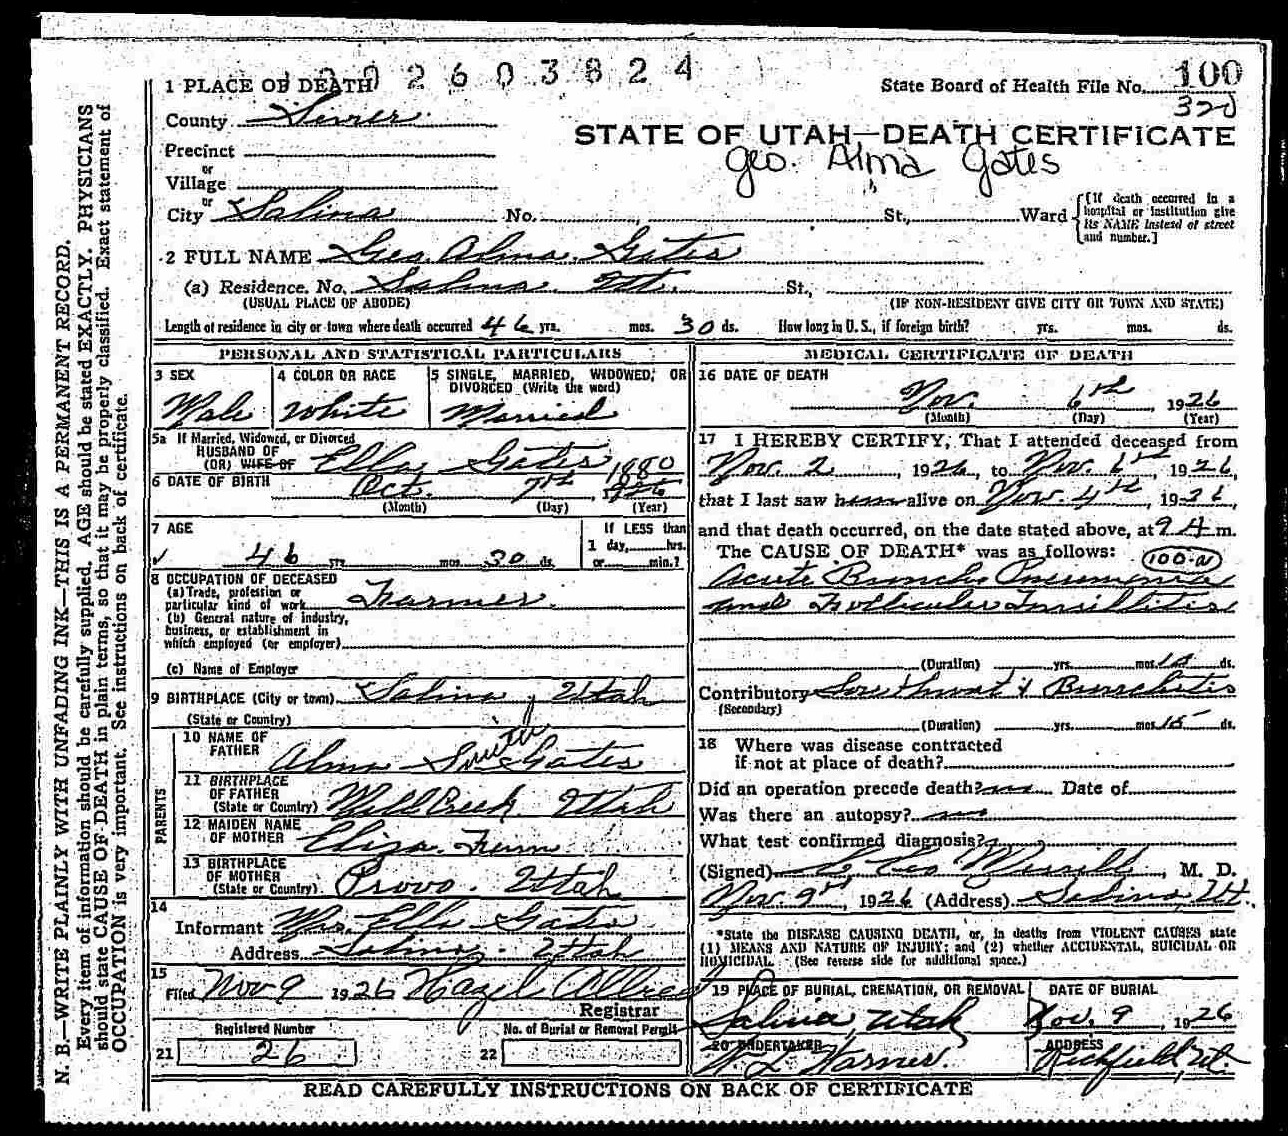 1 PLACE OF DEATH
2603824
State Board of Health File No. 100
320
County Sevier
STATE OF UTAH—DEATH CERTIFICATE
Geo. Alma Gates
Precinct
or
Village
or
City Salina No. , St., Ward
{[If death occurred in a hospital or institution give its NAME instead of street and number.]
2 FULL NAME Geo. Alma Gates
(a) Residence. No. Salina Ut. St.,
(USUAL PLACE OF ABODE) (IF NON-RESIDENT GIVE CITY OR TOWN AND STATE)
Length of residence in city or town where death occurred 46 yrs. mos. 30 ds. How long in U. S., if foreign birth? yrs. mos. ds.
PERSONAL AND STATISTICAL PARTICULARS
3 SEX
Male
4 COLOR OR RACE
White
5 SINGLE, MARRIED, WIDOWED, OR
DIVORCED (Write the word)
Married
5a If Married, Widowed, or Divorced
HUSBAND OF
(OR) WIFE OF Ella Gates
6 DATE OF BIRTH Oct. 7th 1880
(Month) (Day) (Year)
7 AGE
46 yrs. mos. 30 ds.
If LESS than
1 day, hrs.
or min.?
8 OCCUPATION OF DECEASED
(a) Trade, profession or
particular kind of work Farmer.
(b) General nature of industry,
business, or establishment in
which employed (or employer)
(c) Name of Employer
9 BIRTHPLACE (City or town) Salina, Utah
(State or Country)
PARENTS
10 NAME OF
FATHER Alma Smith Gates
11 BIRTHPLACE
OF FATHER
(State or Country) Mill Creek, Utah
12 MAIDEN NAME
OF MOTHER Eliza
13 BIRTHPLACE
OF MOTHER
(State or Country) Provo. Utah
14
Informant Mrs. Ella Gates
Address Salina. Utah
15
Filed Nov 9 1926 Hazel Allred
Registrar
Registered Number
21 26
No. of Burial or Removal Permit
22
MEDICAL CERTIFICATE OF DEATH
16 DATE OF DEATH
Nov. 6th, 1926
(Month) (Day) (Year)
17 I HEREBY CERTIFY, That I attended deceased from
Nov. 2, 1926, to Nov. 6th, 1926,
that I last saw him alive on Nov. 4th, 1926,
and that death occurred, on the date stated above, at 9 A m.
The CAUSE OF DEATH* was as follows:
100-a
Acute Broncho Pneumonia
and Follicular Tonsillitis
(Duration) yrs. mos. ds.
Contributory Sore throat & Bronchitis
(Secondary)
(Duration) yrs. mos. 15 ds.
18 Where was disease contracted
if not at place of death?
Did an operation precede death? no Date of
Was there an autopsy? no
What test confirmed diagnosis?
(Signed) Leo Merrill, M. D.
Nov. 9th, 1926 (Address) Salina, Ut.
*State the DISEASE CAUSING DEATH, or, in deaths from VIOLENT CAUSES state
(1) MEANS AND NATURE OF INJURY; and (2) whether ACCIDENTAL, SUICIDAL OR
HOMICIDAL. (See reverse side for additional space.)
19 PLACE OF BURIAL, CREMATION, OR REMOVAL
Salina, Utah
DATE OF BURIAL
Nov. 9, 1926
20 UNDERTAKER
W. L. Warner.
ADDRESS
Richfield, Ut.
READ CAREFULLY INSTRUCTIONS ON BACK OF CERTIFICATE
N. B.—WRITE PLAINLY WITH UNFADING INK—THIS IS A PERMANENT RECORD.
Every item of information should be carefully supplied. AGE should be stated EXACTLY. PHYSICIANS
should state CAUSE OF DEATH in plain terms, so that it may be properly classified. Exact statement of
OCCUPATION is very important. See instructions on back of certificate.